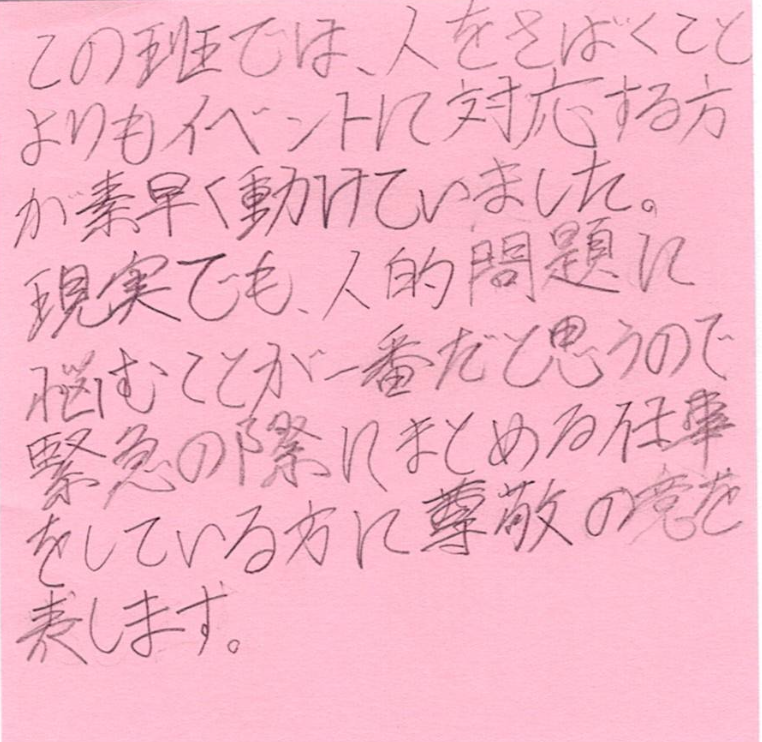 この班では、人をさばくこと
よりもイベントに対応する方
が素早く動けていました。
現実でも、人的問題に
悩むことが一番だと思うので
緊急の際にまとめる仕事
をしている方に尊敬の意を
表します。